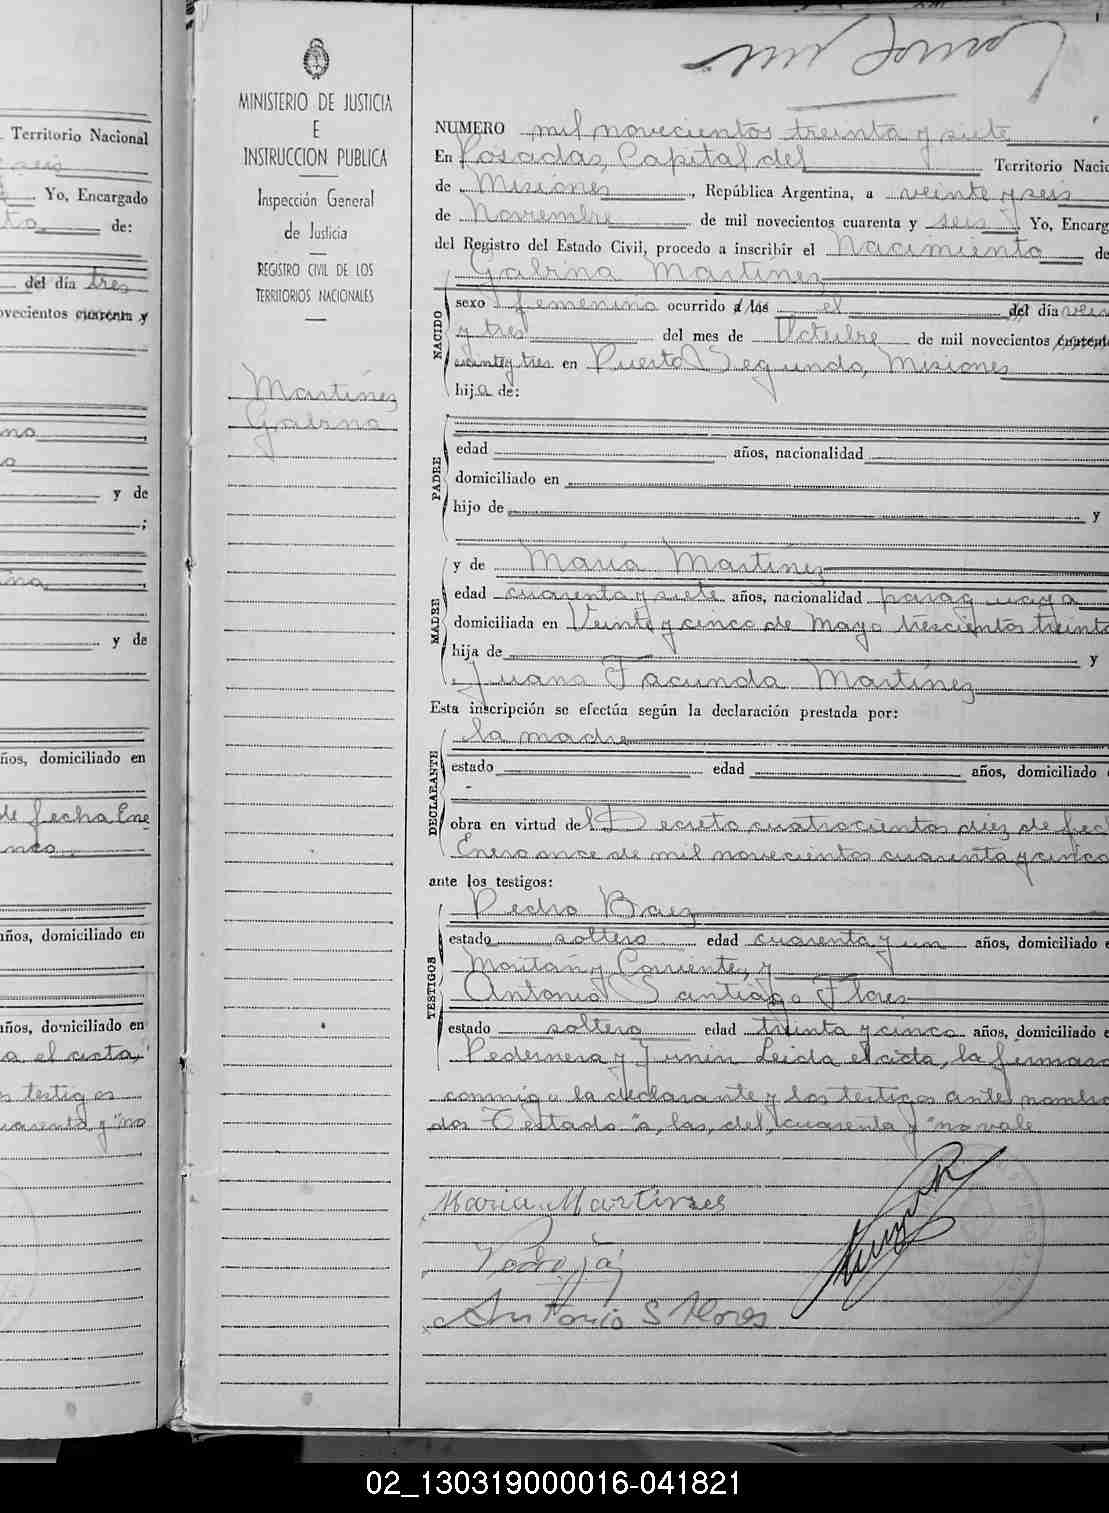 Territorio Nacional
Yo, Encargado
de:
del día tres
ovecientos cuarenta y
y de
;
y de
ños, domiciliado en
de fecha Ene
años, domiciliado en
años, domiciliado en
a el acta,
s testigos
uarenta y "no
MINISTERIO DE JUSTICIA
E
INSTRUCCION PUBLICA
Inspección General
de Justicia
REGISTRO CIVIL DE LOS
TERRITORIOS NACIONALES
Martínez
Gabina
NUMERO mil novecientos treinta y siete
En Posadas, Capital del Territorio Nacio
de Misiones, República Argentina, a veinte y seis
de Noviembre de mil novecientos cuarenta y seis Yo, Encarg
del Registro del Estado Civil, procedo a inscribir el Nacimiento de
Gabina Martínez
NACIDO
sexo femenino ocurrido a las el del día vein
y tres del mes de Octubre de mil novecientos cuarent
veinte y tres en Puerto Segundo, Misiones
hija de:
PADRE
edad años, nacionalidad
domiciliado en
hijo de y
MADRE
y de María Martínez
edad cuarenta y siete años, nacionalidad paraguaya
domiciliada en Veinte y cinco de Mayo trescientos treinta
hija de y
Juana Facunda Martínez
Esta inscripción se efectúa según la declaración prestada por:
DECLARANTE
la madre
estado edad años, domiciliado e
obra en virtud del Decreto cuatrocientos diez de fech
Enero once de mil novecientos cuarenta y cinco
ante los testigos:
TESTIGOS
Pedro Baez
estado soltero edad cuarenta y un años, domiciliado e
Moritán y Corrientes, y
Antonio Santiago Flores
estado soltero edad treinta y cinco años, domiciliado e
Pedernera y Junin Leida el acta, la firmaro
conmigo la declarante y los testigos ante nombra
dos Testado "a, las, del, cuarenta y "no vale
Maria Martines
Antonio S Flores
02_130319000016-041821